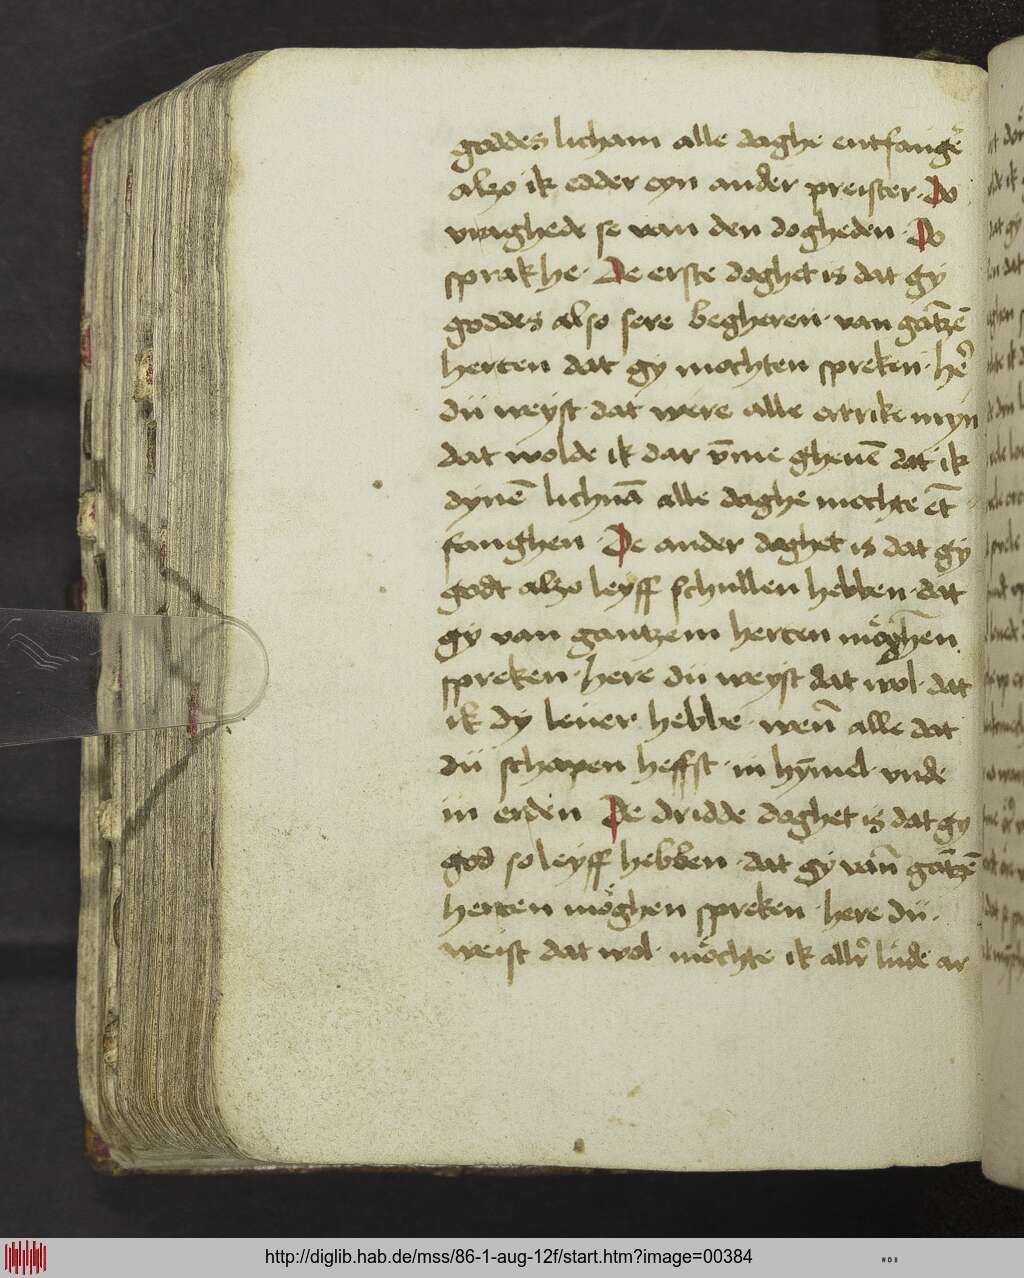 goddes licham alle daghe entfangē
alzo ik edder eyn ander preister · Do
vraghede se van den dogheden · Do
sprak he · De erste doghet is dat gy
goddes also sere begheren · van gātzē
herten dat gy mochten spreken · hē
dü weyst dat were alle ertrike myn
dat wolde ik dar v̄me gheuē dat ik
dynē lichnā alle daghe mochte ēt
fanghen · De ander doghet is dat gy
godt alzo leyff schullen hebben · dat
gy van gantzem herten möghen
spreken · here dü weyst dat wol · dat
ik dy leuer hebbe · wen̄ alle dat
dü schapen heffst · in hȳmel · vnde
in erden De dridde doghet is dat gy
god so leyff hebben · dat gy van̄ gātzē
herten möghen spreken · here dü ·
weist dat wol · möchte ik allr̄ lüde ar
http://diglib.hab.de/mss/86-1-aug-12f/start.htm?image=00384